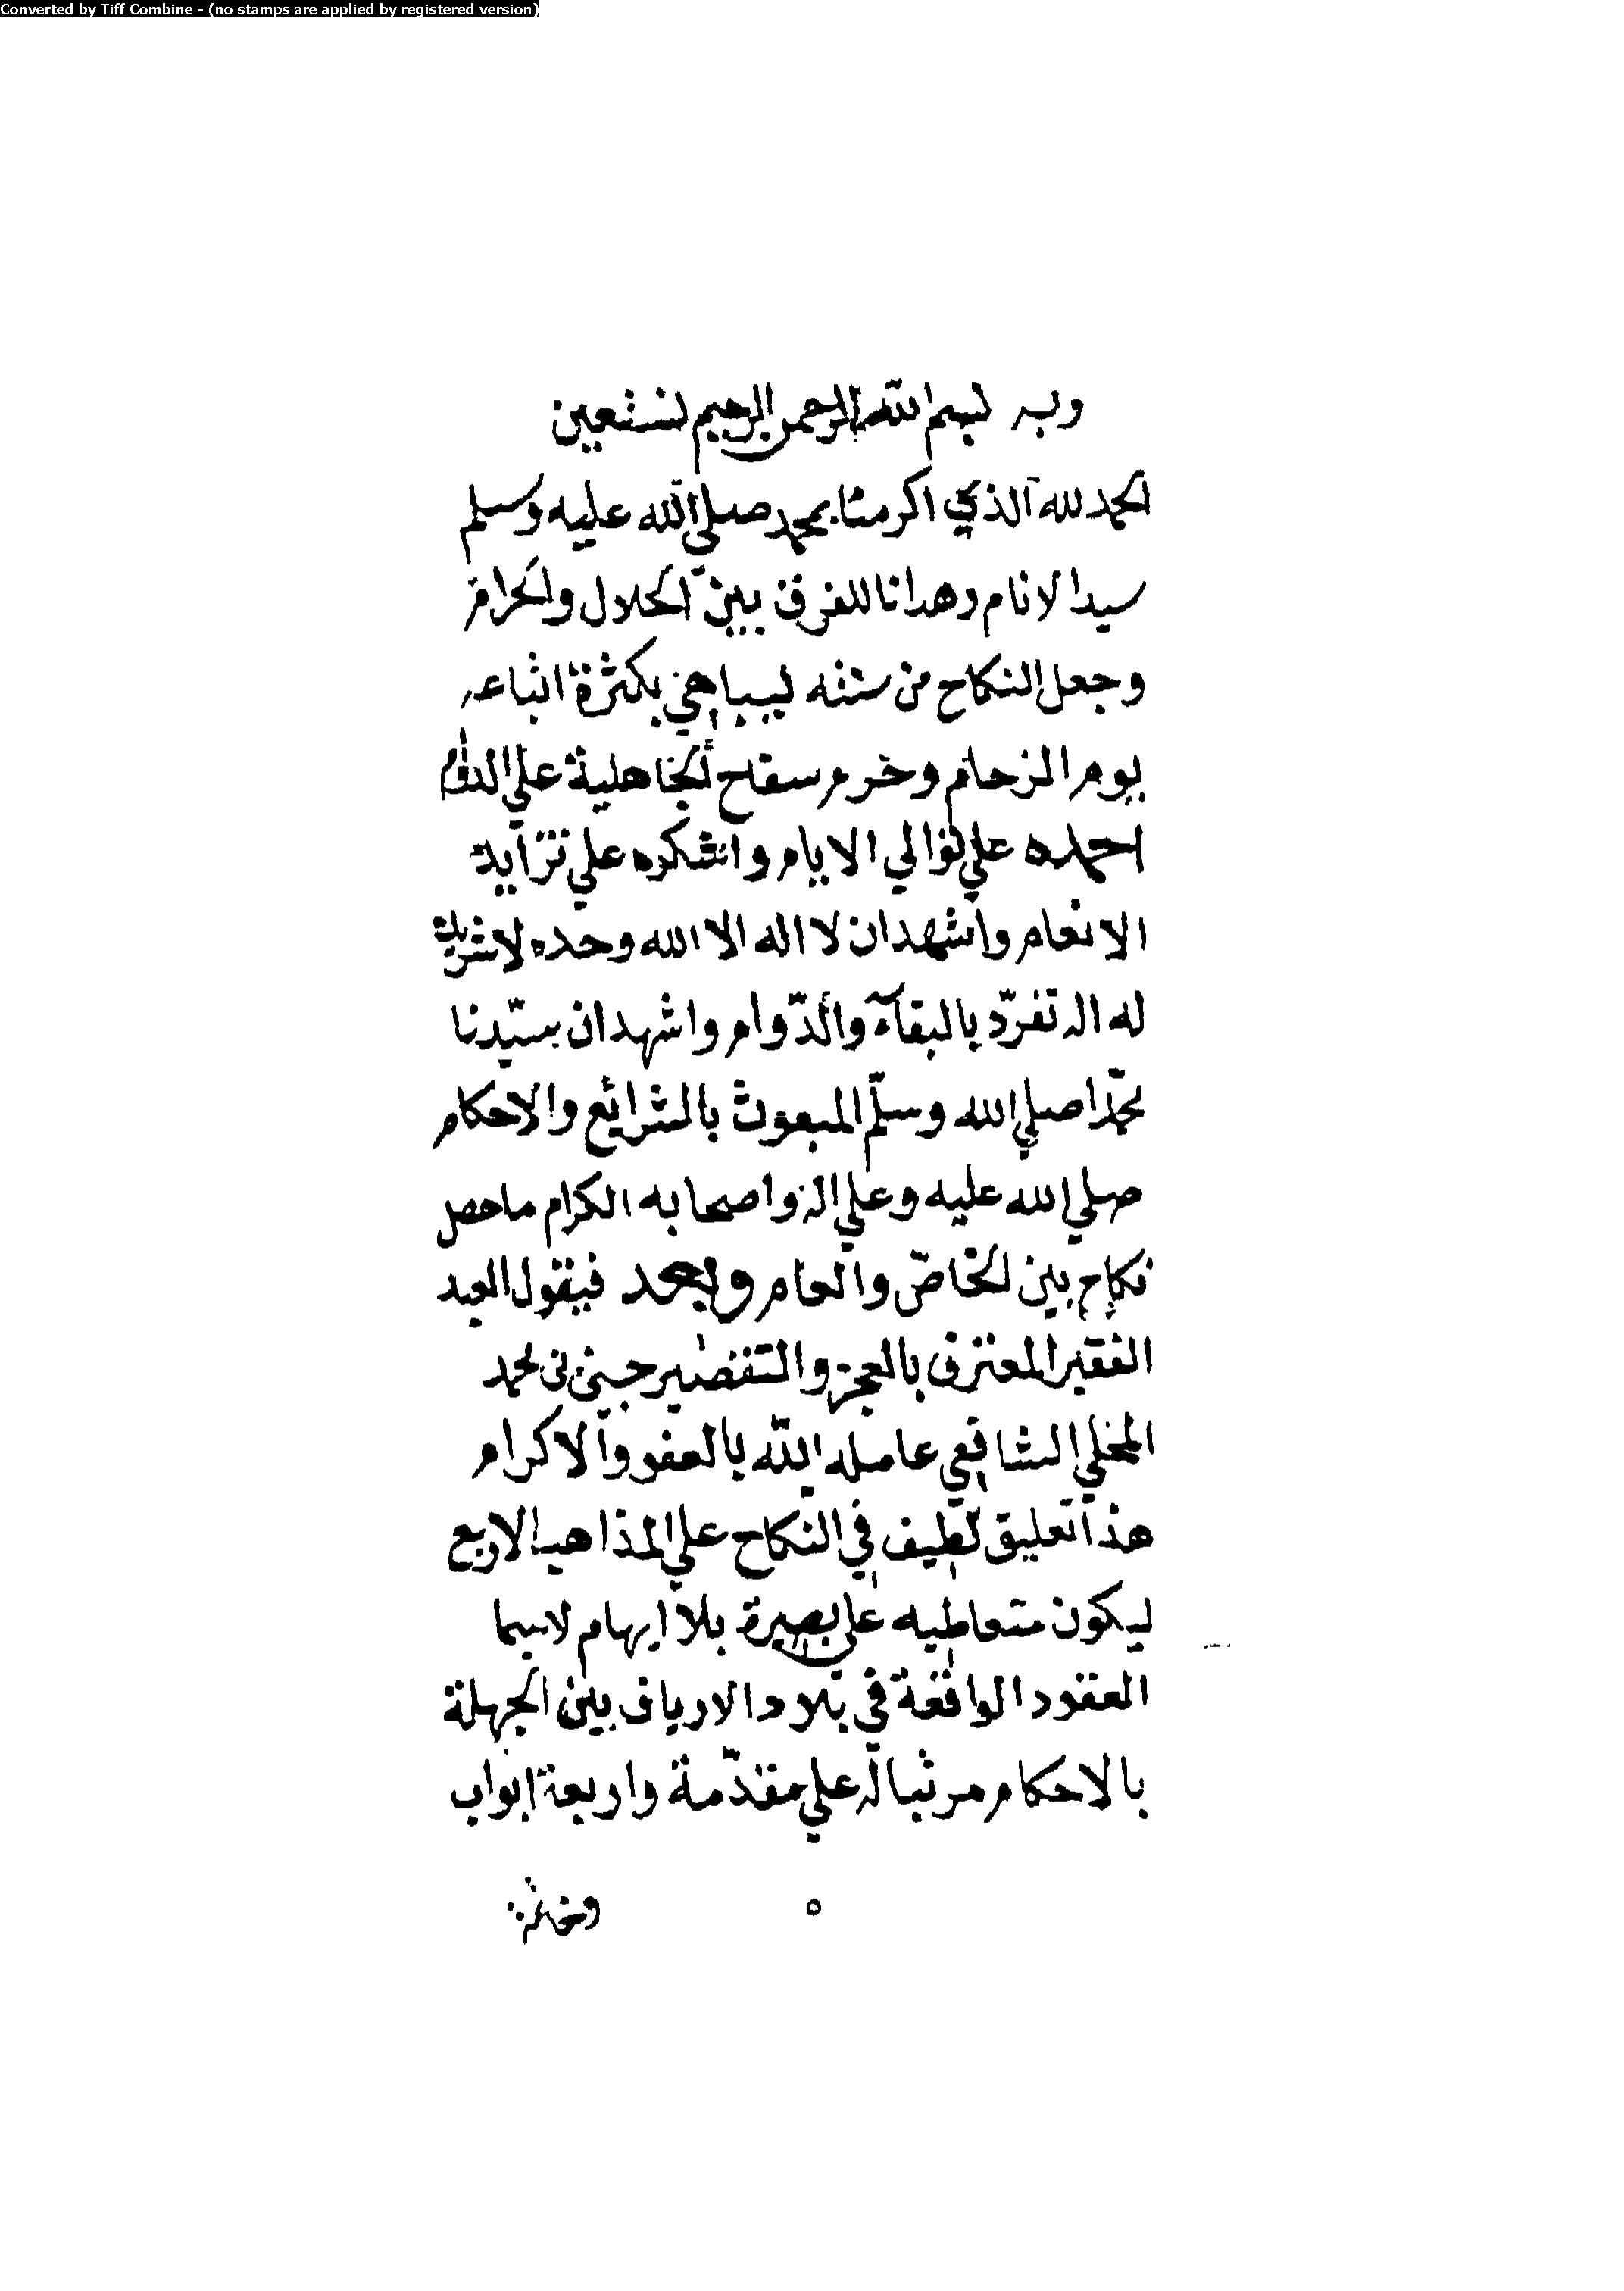 Converted by Tiff Combine - (no stamps are applied by registered version)
وبه بسم الله الرحمن الرحيم نستعين
الحمد لله الذي اكرمنا بمحمد صلي الله عليه وسلم
سيد الانام وهدانا للفرق بين الحلال والحرام
وجعل النكاح من سنته ليباهي بكثرة اتباعه
يوم الزحام وحرم سفاح الجاهلية علي الدوام
احمده علي توالي الايام واشكره علي تزايد
الانعام واشهد ان لا اله الا الله وحده لا شريك
له اله تفرّد بالبقآء والدّوام واشهد ان سيّدنا
محمّدا صلي الله وسلّم المبعوث بالشرائع والاحكام
صلي الله عليه وعلي اله واصحابه الكرام ما حصل
نكاح بين الخاصّ والعام وبعد فيقول العبد
الفقير المعترف بالعجز والتقصير حسين بن محمد
المحلي الشافعي عامله الله بالعفو والاكرام
هذا تعليق لطيف في النكاح علي المذاهب الاربع
ليكون متعاطيه علي بصيرة بلا ابهام لاسيما
العقود الواقعة في بلاد الارياف بين الجهلة
بالاحكام مرتبا له علي مقدّمة واربعة ابواب
وخاتمة